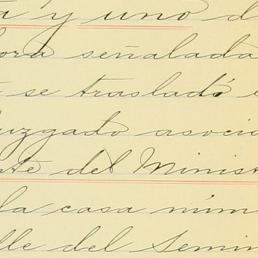 a y uno d
ora señalada
se trasladó
uzgado asocia
nte del Minist
la casa núm
lle del Semin